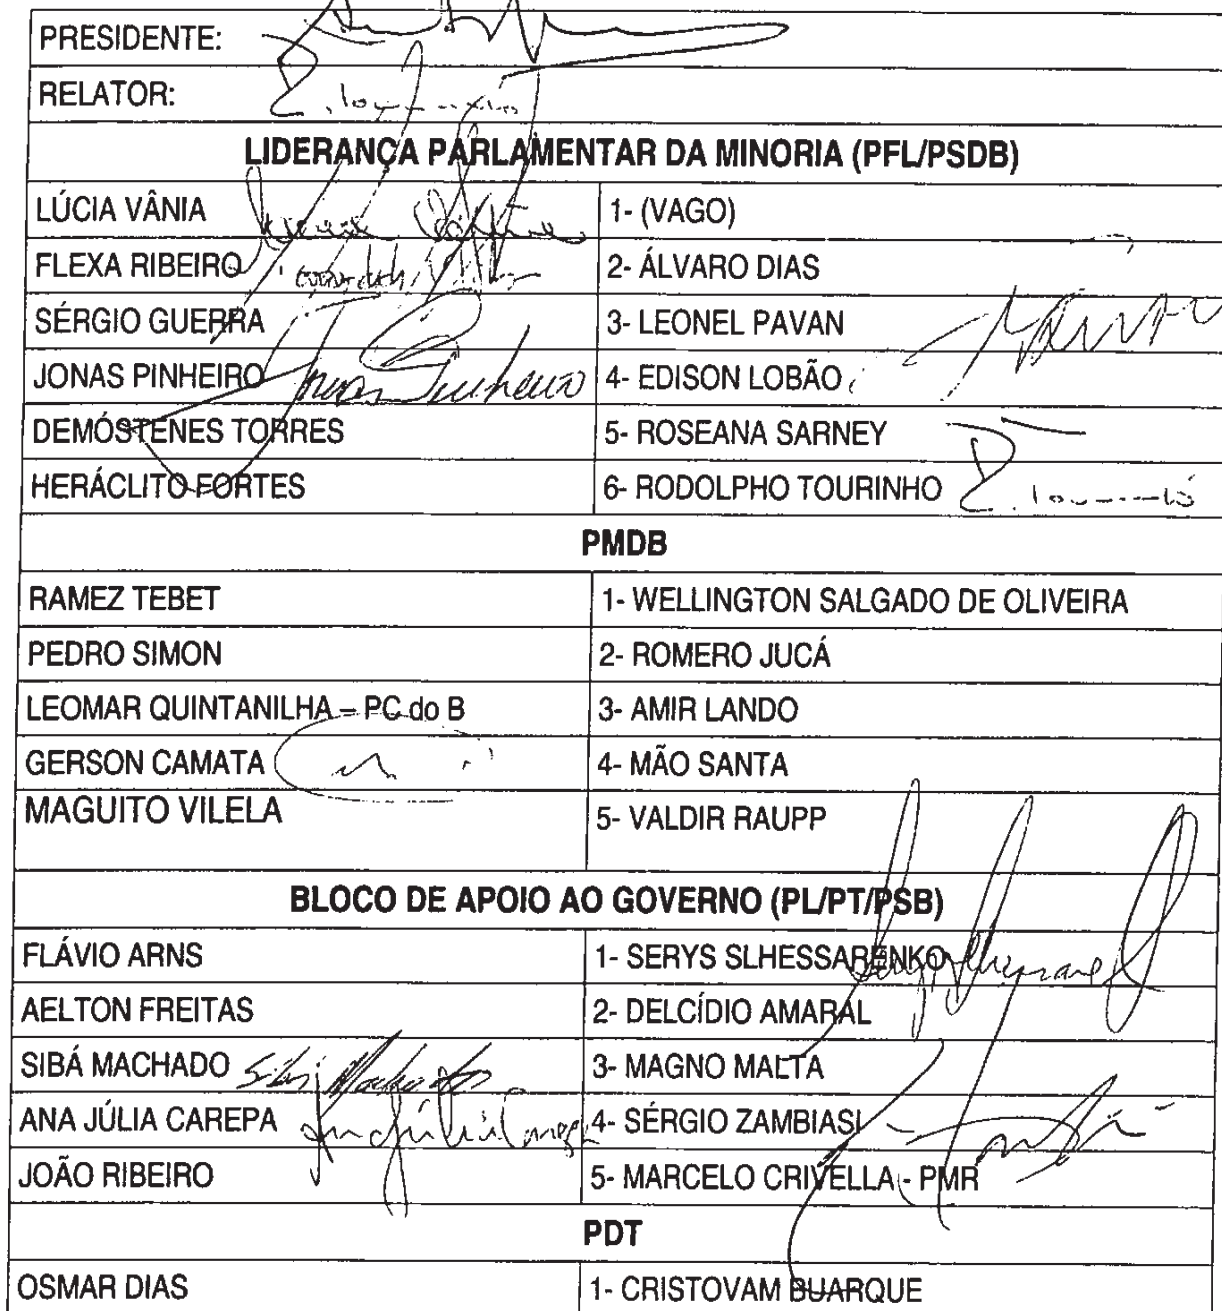 PRESIDENTE:
RELATOR: R. Tourinho
LIDERANÇA PARLAMENTAR DA MINORIA (PFL/PSDB)
LÚCIA VÂNIA 1- (VAGO)
FLEXA RIBEIRO 2- ÁLVARO DIAS
SÉRGIO GUERRA 3- LEONEL PAVAN
JONAS PINHEIRO Jonas Pinheiro 4- EDISON LOBÃO
DEMÓSTENES TORRES 5- ROSEANA SARNEY
HERÁCLITO FORTES 6- RODOLPHO TOURINHO R. Tourinho
PMDB
RAMEZ TEBET 1- WELLINGTON SALGADO DE OLIVEIRA
PEDRO SIMON 2- ROMERO JUCÁ
LEOMAR QUINTANILHA – PC do B 3- AMIR LANDO
GERSON CAMATA 4- MÃO SANTA
MAGUITO VILELA 5- VALDIR RAUPP
BLOCO DE APOIO AO GOVERNO (PL/PT/PSB)
FLÁVIO ARNS 1- SERYS SLHESSARENKO
AELTON FREITAS 2- DELCÍDIO AMARAL
SIBÁ MACHADO Sibá Machado 3- MAGNO MALTA
ANA JÚLIA CAREPA Ana Júlia Carepa 4- SÉRGIO ZAMBIASI
JOÃO RIBEIRO 5- MARCELO CRIVELLA - PMR
PDT
OSMAR DIAS 1- CRISTOVAM BUARQUE